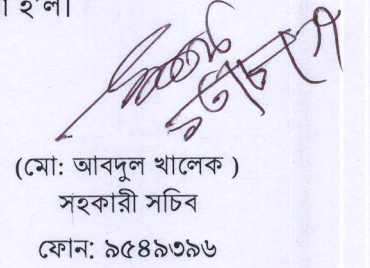 হ'ল।
(মো: আবদুল খালেক )
সহকারী সচিব
ফোন: ৯৫৪৯৩৯৬